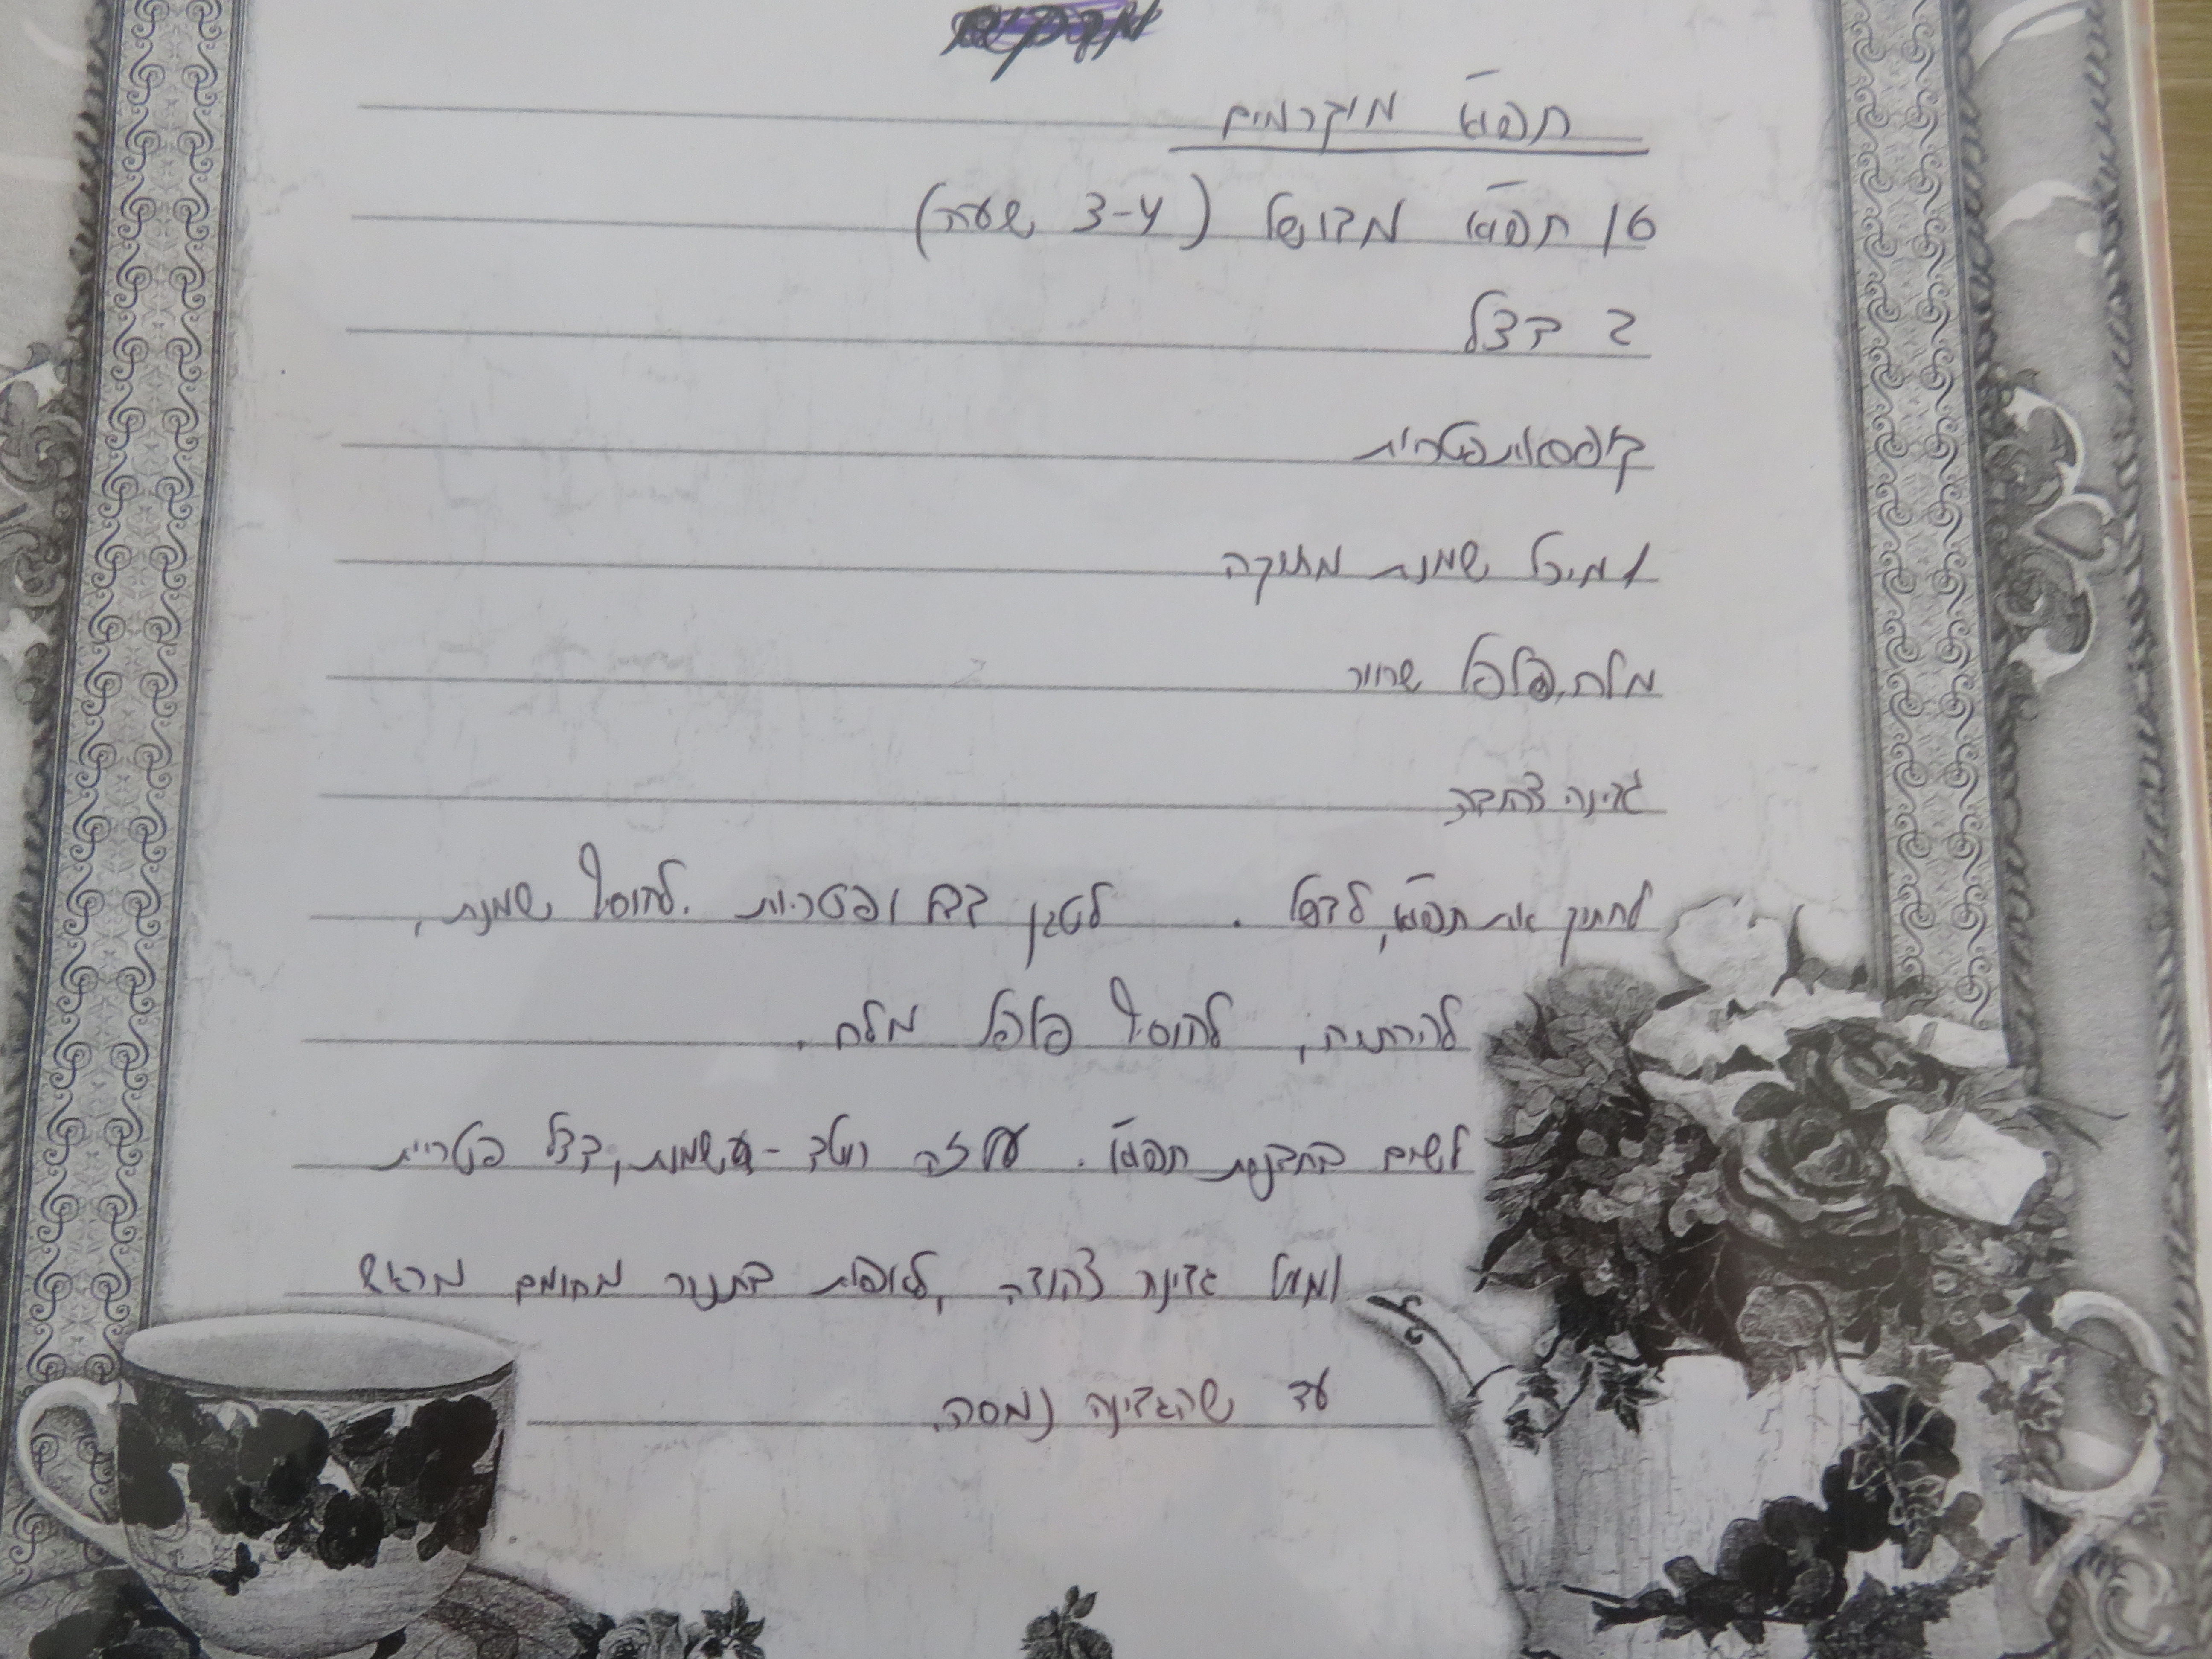 תפו"א מוקרמים
10 תפו"א מבושל (3-4 שעה)
2 בצל
קופסאות פטריות
1 מיכל שמנת מתוקה
מלח, פלפל שחור
גבינה צהובה
לחתוך את תפו"א, לבשל. לטגן בצל ופטריות. להוסיף שמנת,
להרתיח, להוסיף פלפל מלח.
לשים בתבנית תפו"א. על זה רוטב - שמנת, בצל פטריות
ומעל גבינה צהובה, לאפות בתנור מחומם מראש
עד שהגבינה נמסה.